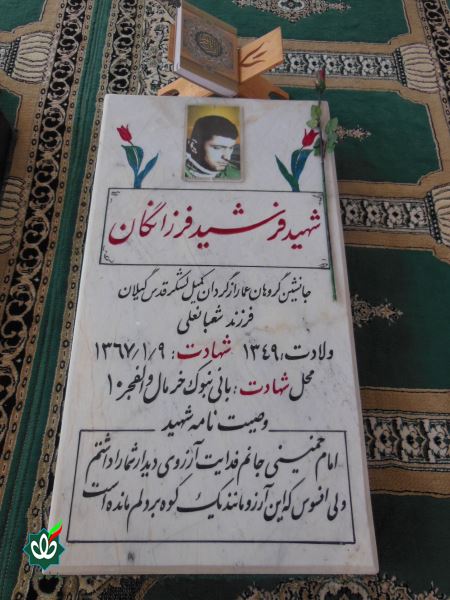 شهید فرشید فرزانگان
جانشین گروهان عمار از گردان کمیل لشکر قدس گیلان
فرزند شعبانعلی
ولادت: ۱۳۴۹ شهادت: ۱۳۶۷/۱/۹
محل شهادت: بانی بنوک خرمال والفجر ۱۰
وصیت نامه شهید
امام خمینی جانم فدایت آرزوی دیدار شما را داشتم
ولی افسوس که این آرزو مانند یک کوه بر دلم مانده است